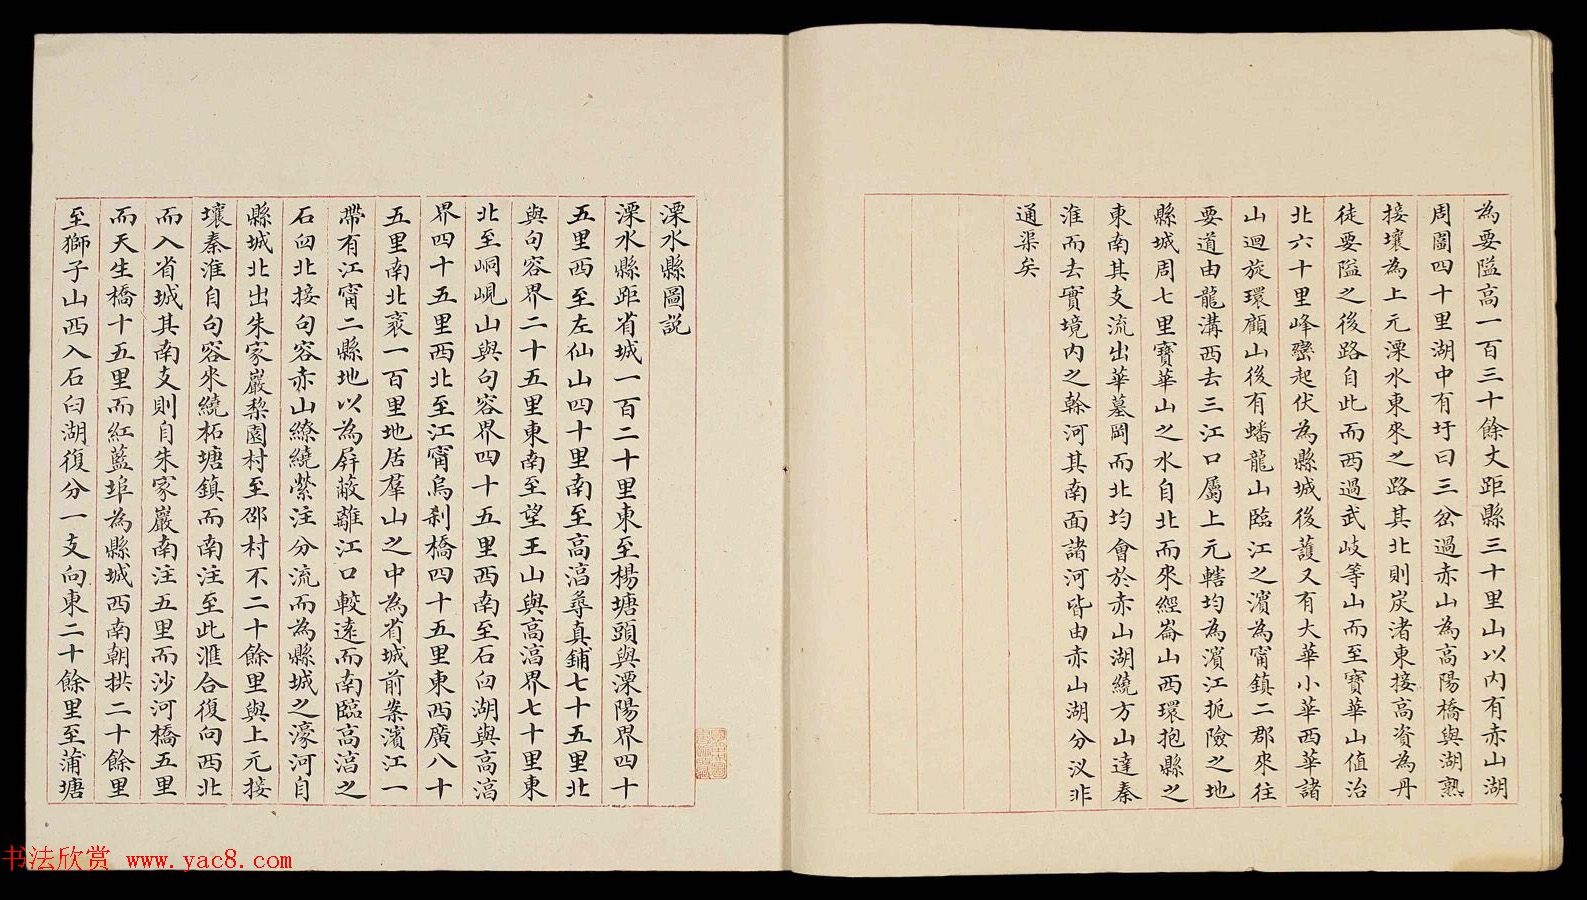 為要隘高一百三十餘丈距縣三十里山以内有赤山湖
周圍四十里湖中有圩曰三岔過赤山為高陽橋與湖熟
接壤為上元溧水東來之路其北則炭渚東接高資為丹
徒要隘之後路自此而西過武岐等山而至寶華山值治
北六十里峰巒起伏為縣城後護又有大華小華西華諸
山迴旋環顧山後有蟠龍山臨江之濱為甯鎮二郡來往
要道由龍溝西去三江口屬上元轄均為濱江扼險之地
縣城周七里寶華山之水自北而來經崙山西環抱縣之
東南其支流出華墓岡而北均會於赤山湖繞方山達秦
淮而去實境内之榦河其南面諸河皆由赤山湖分汊非
通渠矣
溧水縣圖説
溧水縣距省城一百二十里東至楊塘頭與溧陽界四十
五里西至左仙山四十里南至高淳尋真鋪七十五里北
與句容界二十五里東南至望王山與高淳界七十里東
北至峒峴山與句容界四十五里西南至石臼湖與高淳
界四十五里西北至江甯烏刹橋四十五里東西廣八十
五里南北袤一百里地居羣山之中為省城前案濱江一
帶有江甯二縣地以為屏蔽離江口較遠而南臨高淳之
石臼北接句容赤山繚繞縈注分流而為縣城之濠河自
縣城北出朱家巖棃園村至邵村不二十餘里與上元接
壤秦淮自句容來繞柘塘鎮而南注至此滙合復向西北
而入省城其南支則自朱家巖南注五里而沙河橋五里
而天生橋十五里而紅藍埠為縣城西南朝拱二十餘里
至獅子山西入石臼湖復分一支向東二十餘里至蒲塘
书法欣赏 www.yac8.com